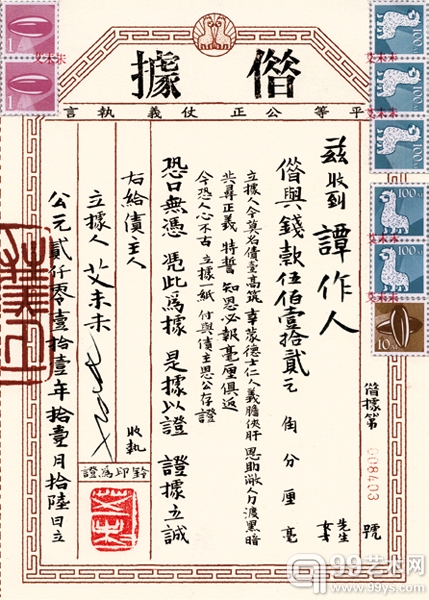 借據
平等公正仗義執言
借據第 008403 號
茲收到 譚作人 先生 女士
借與錢款伍佰壹拾貳元 角 分 厘 毫
立據人今莫名債臺高筑 幸蒙德士仁人義膽俠肝 恩助 力渡黑暗
共尋正義 特誓 知恩必報毫厘俱返
今恐人心不古 立據一紙 付與債主思公存證
恐口無憑 憑此爲據 是據以證 證據立誠
右給債主人 收執
立據人 艾未未
鈐印爲證
公元貳仟零壹拾壹年拾壹月拾陸日立
1
1
艾未未
100元
艾未未
100元
艾未未
100元
100元
艾未未
100元
艾未未
10元
99艺术网
www.99ys.com